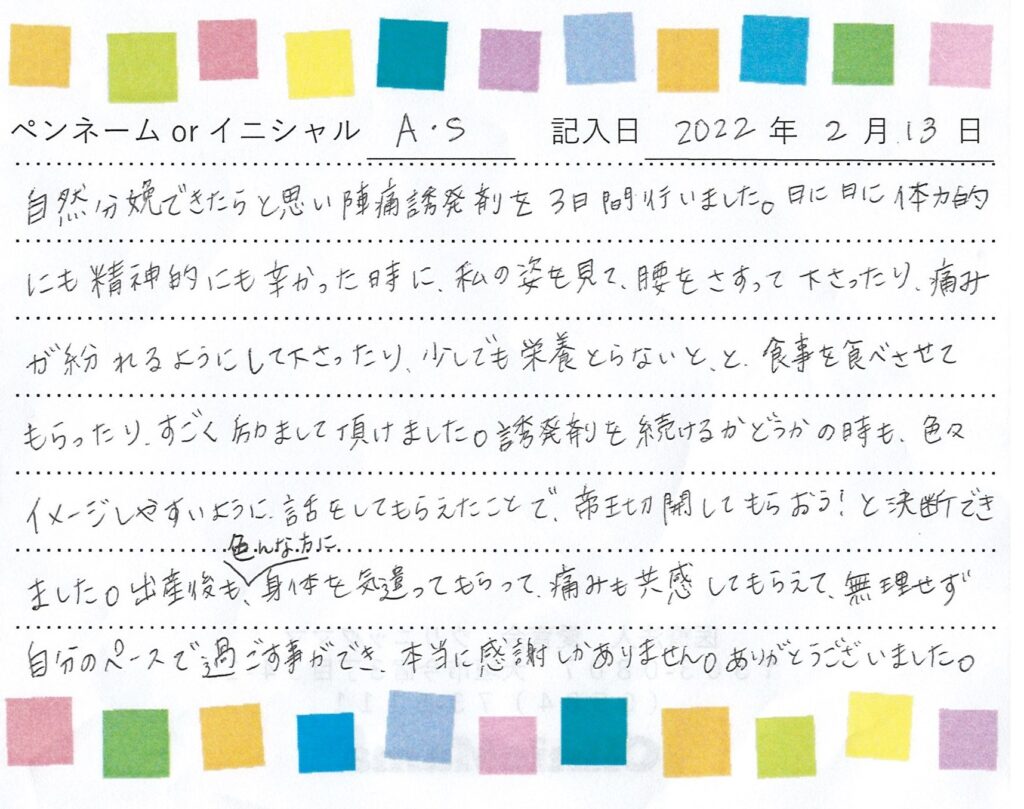 ペンネーム or イニシャル A・S 記入日 2022 年 2 月 13 日
自然分娩できたらと思い陣痛誘発剤を3日間行いました。日に日に体力的
にも精神的にも辛かった時に、私の姿を見て、腰をさすって下さったり、痛み
が紛れるようにして下さったり、少しでも栄養とらないと、と、食事を食べさせて
もらったり、すごく励まして頂けました。誘発剤を続けるかどうかの時も、色々
イメージしやすいように、話をしてもらえたことで、帝王切開してもらおう!と決断でき
色んな方に
ました。出産後も、身体を気遣ってもらって、痛みも共感してもらえて、無理せず
自分のペースで過ごす事ができ、本当に感謝しかありません。ありがとうございました。